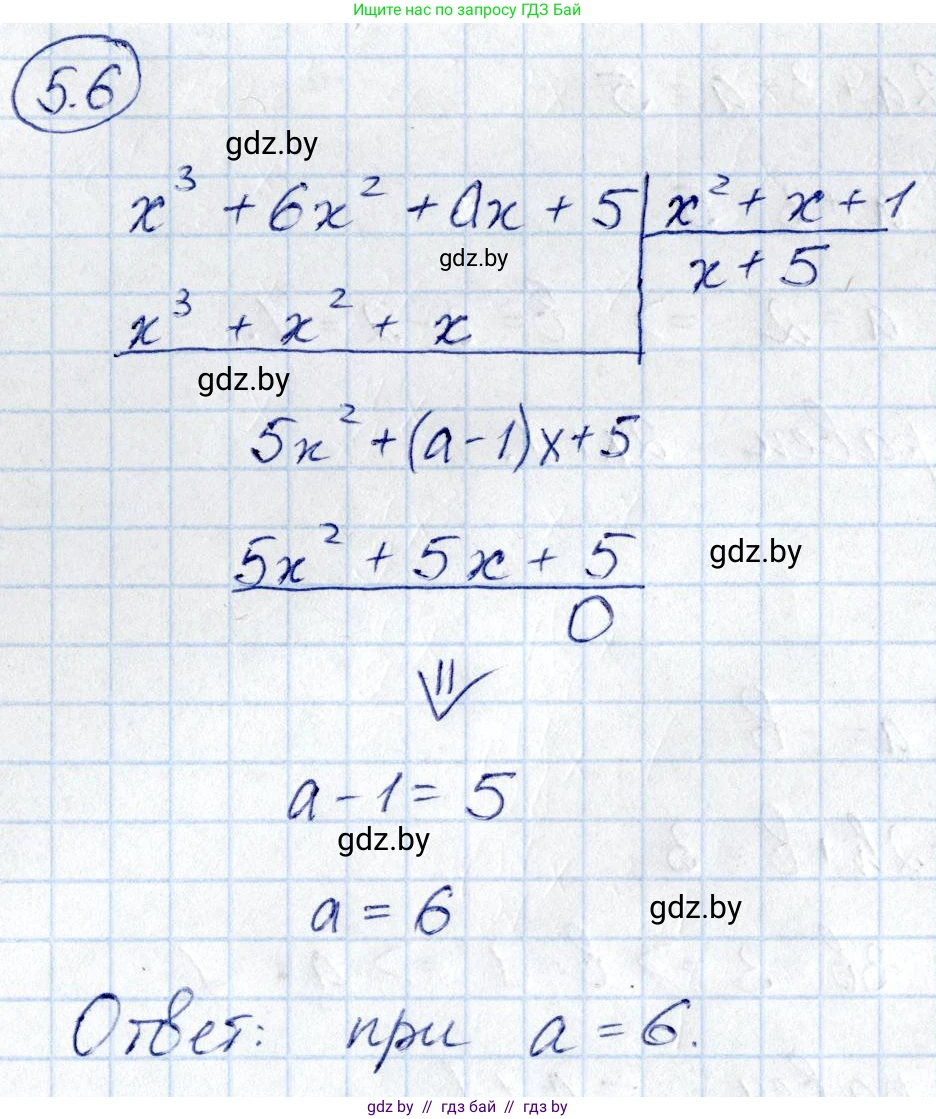 Ищите нас по запросу ГДЗ Бай
5.6
gdz.by
x³ + 6x² + ax + 5 | x² + x + 1
gdz.by
x + 5
x³ + x² + x
gdz.by
5x² + (a-1)x + 5
5x² + 5x + 5
gdz.by
0
⇓
a - 1 = 5
gdz.by
a = 6
gdz.by
Ответ: при a = 6.
gdz.by // гдз бай // gdz.by